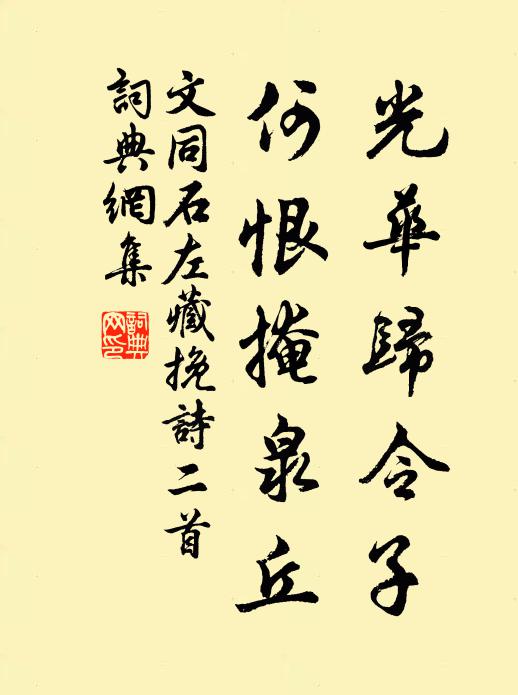 光華歸令子
何恨掩泉丘
文同石左藏挽詩二首
詞典網集
詞典網印